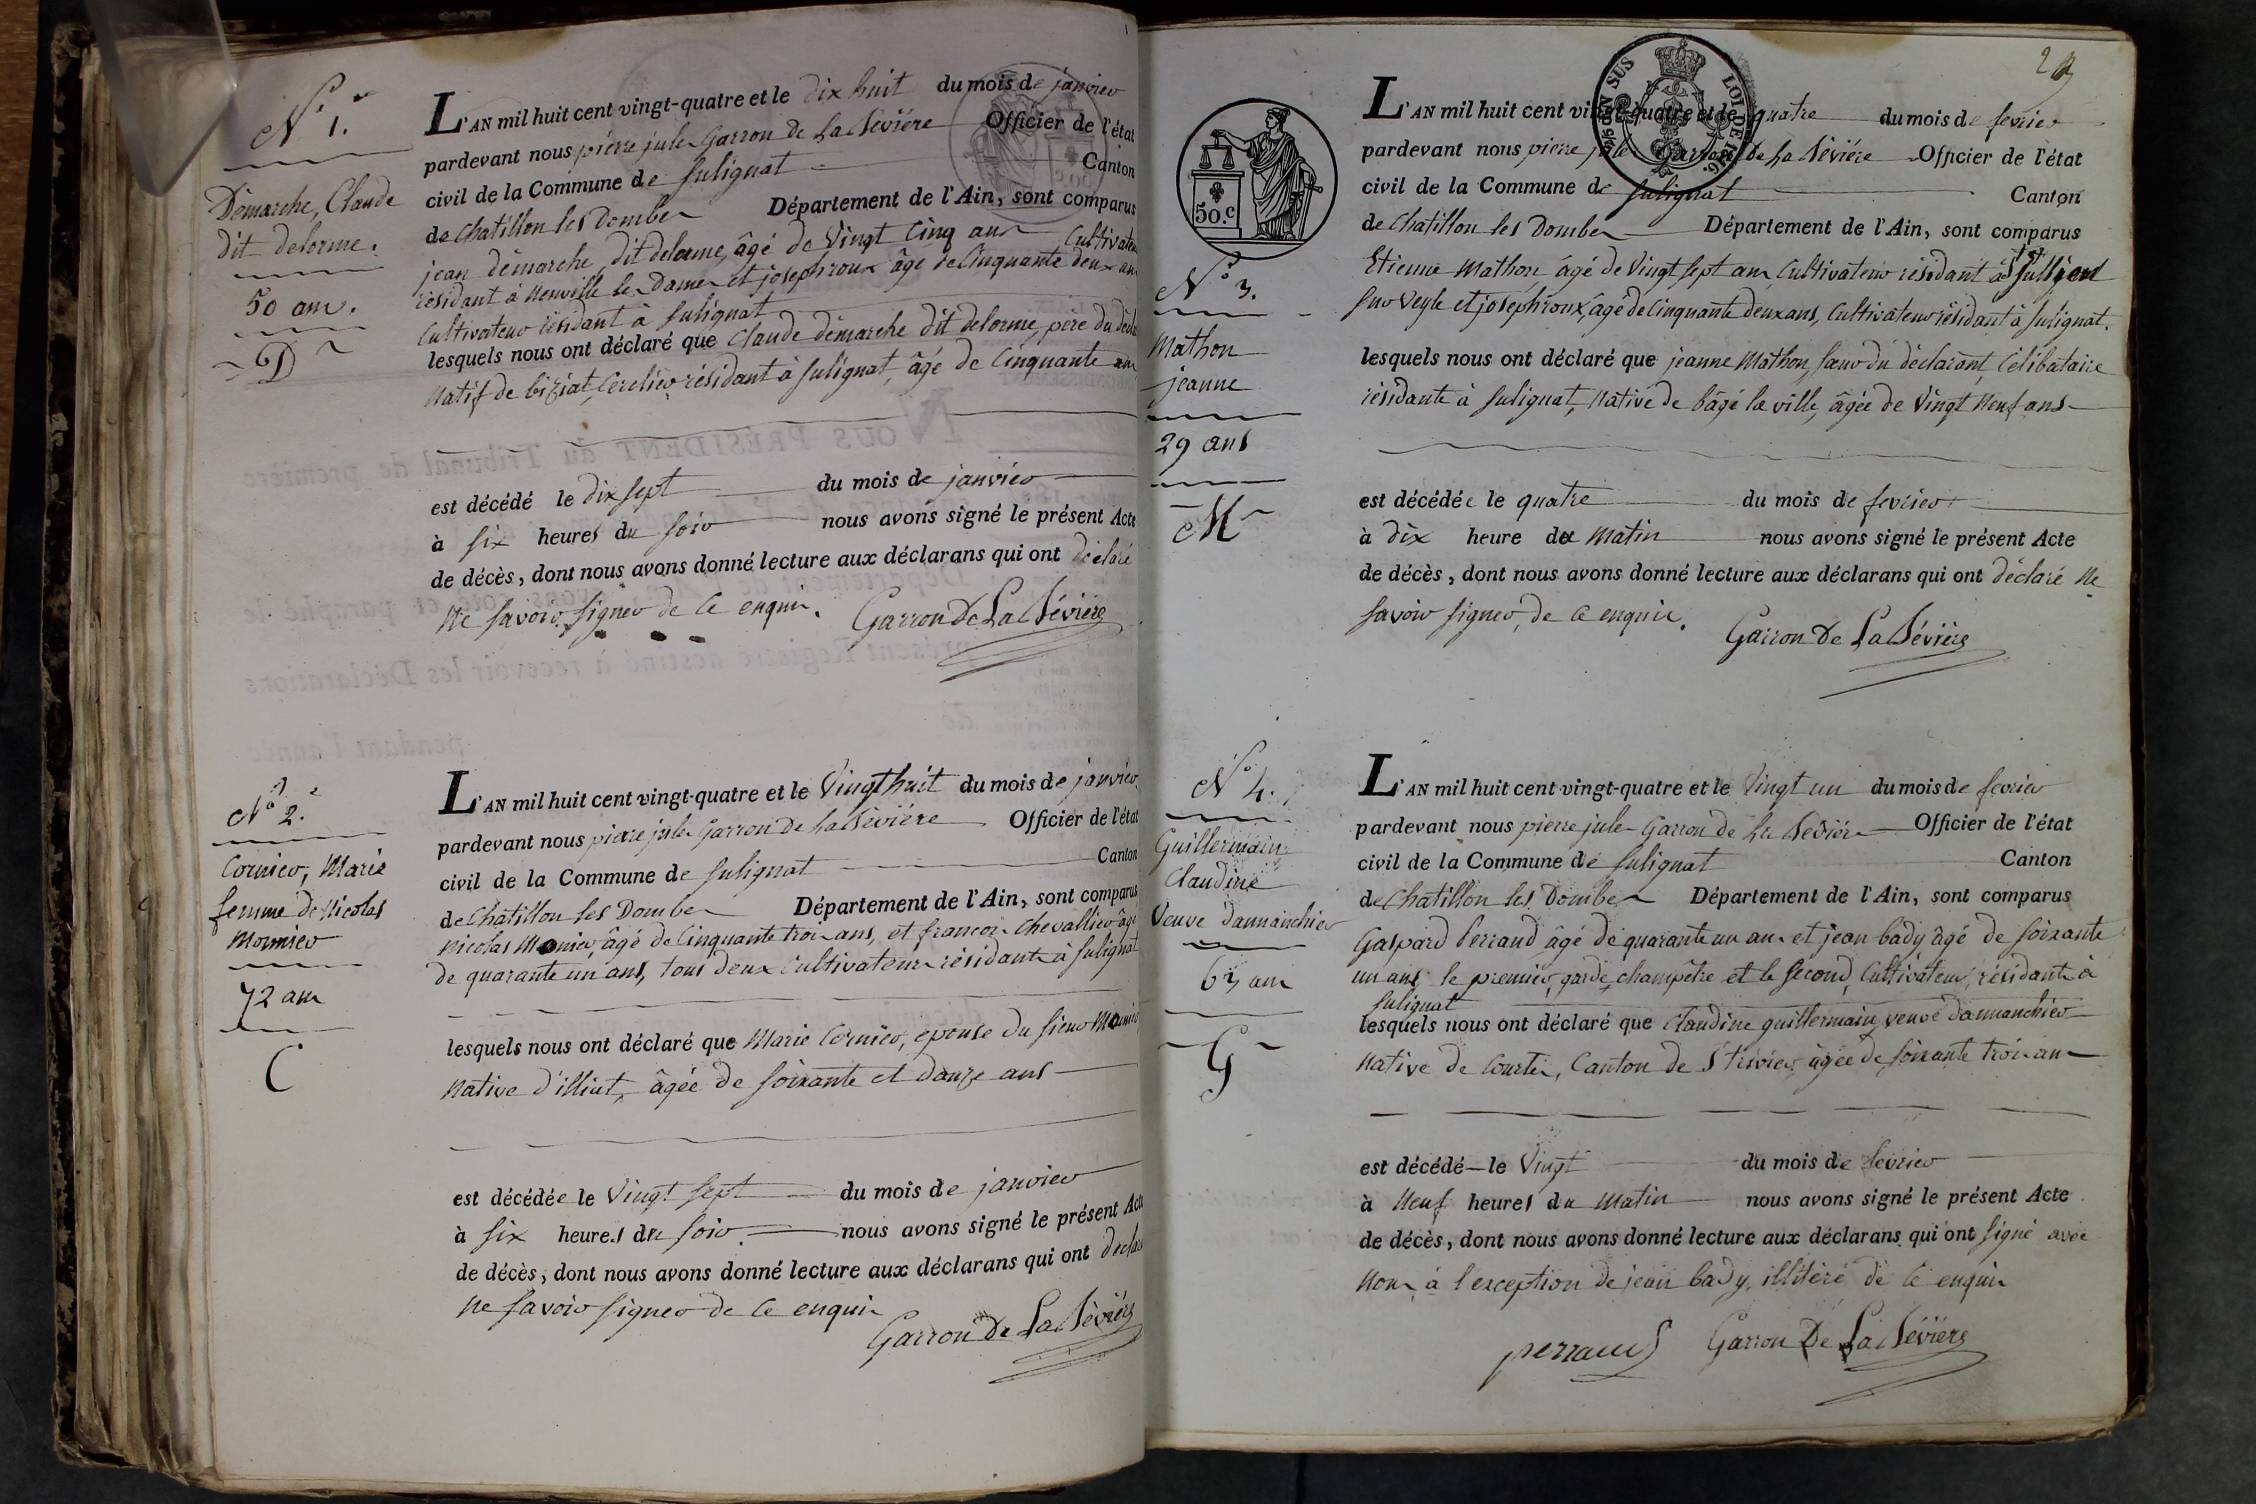 N.° 1.er
Démarche, Claude
dit delorme.
50 ans.
D
L'AN mil huit cent vingt-quatre et le dix huit du mois de janvier
pardevant nous pierre jules Garron de La Sévière Officier de l'état
civil de la Commune de Sulignat Canton
de Chatillon les Dombes Département de l'Ain, sont comparus
jean démarche dit delorme, âgé de Vingt Cinq ans Cultivateur
résidant à Neuville les Dames et joseph roux âgé de Cinquante deux ans
Cultivateur résidant à Sulignat
lesquels nous ont déclaré que Claude démarche dit delorme, père du
Natif de biziat, Cerclier résidant à Sulignat, âgé de Cinquante ans
est décédé le dix sept du mois de janvier
à six heures du soir nous avons signé le présent Acte
de décès, dont nous avons donné lecture aux déclarans qui ont déclaré
Ne savoir signer de ce enquis. Garron De La Sévière
N.° 2.
Cornier, Marie
femme de Nicolas
Mounier
72 ans
C
L'AN mil huit cent vingt-quatre et le Vingt huit du mois de janvier
pardevant nous pierre jules Garron de La Sévière Officier de l'état
civil de la Commune de Sulignat Canton
de Chatillon les Dombes Département de l'Ain, sont comparus
Nicolas Monier, âgé de Cinquante trois ans, et françois Chevallier âgé
de quarante un ans, tous deux Cultivateurs résidants à Sulignat
lesquels nous ont déclaré que Marie Cornier, epouse du sieur Mounier
Native d'illiat, âgée de soixante et douze ans
est décédée le Vingt sept du mois de janvier
à six heures du soir. nous avons signé le présent Acte
de décès, dont nous avons donné lecture aux déclarans qui ont declaré
Ne savoir signer de ce enquis
Garron De La Sévière
2
50.c
LOI DE 1816.
N.° 3.
Mathon
jeanne
29 ans
M
L'AN mil huit cent vingt-quatre et le quatre du mois de fevrier
pardevant nous pierre jules Garron De La Sévière Officier de l'état
civil de la Commune de Sulignat Canton
de Chatillon les Dombes Département de l'Ain, sont comparus
Etienne Mathon, âgé de Vingt sept ans, Cultivateur résidant à St jullien
sur Veyle et joseph roux, âgé de Cinquante deux ans, Cultivateur résidant à Sulignat.
lesquels nous ont déclaré que jeanne Mathon, sœur du déclarant, Célibataire
résidante à Sulignat, Native de bâgé la ville, âgée de Vingt Neuf ans
est décédée le quatre du mois de fevrier
à dix heure du Matin nous avons signé le présent Acte
de décès, dont nous avons donné lecture aux déclarans qui ont déclaré Ne
savoir signer, de ce enquis.
Garron De La Sévière
N.° 4.
Guillermain
Claudine
Veuve dannanchier
63 ans
G
L'AN mil huit cent vingt-quatre et le Vingt un du mois de fevrier
pardevant nous pierre jules Garron de La Sévière Officier de l'état
civil de la Commune de Sulignat Canton
de Chatillon les Dombes Département de l'Ain, sont comparus
Gaspard Perraud âgé de quarante un ans et jean bady âgé de soixante
un ans, le premier, garde champêtre et le second, Cultivateur, résidants à
Sulignat
lesquels nous ont déclaré que Claudine guillermain, veuve dannanchier
Native de Courtes, Canton de St trivier, âgée de soixante trois ans
est décédé le Vingt du mois de fevrier
à Neuf heures du Matin nous avons signé le présent Acte
de décès, dont nous avons donné lecture aux déclarans qui ont signé avec
Nous à l'exception de jean bady, illitéré de ce enquis
perraud Garron De La Sévière